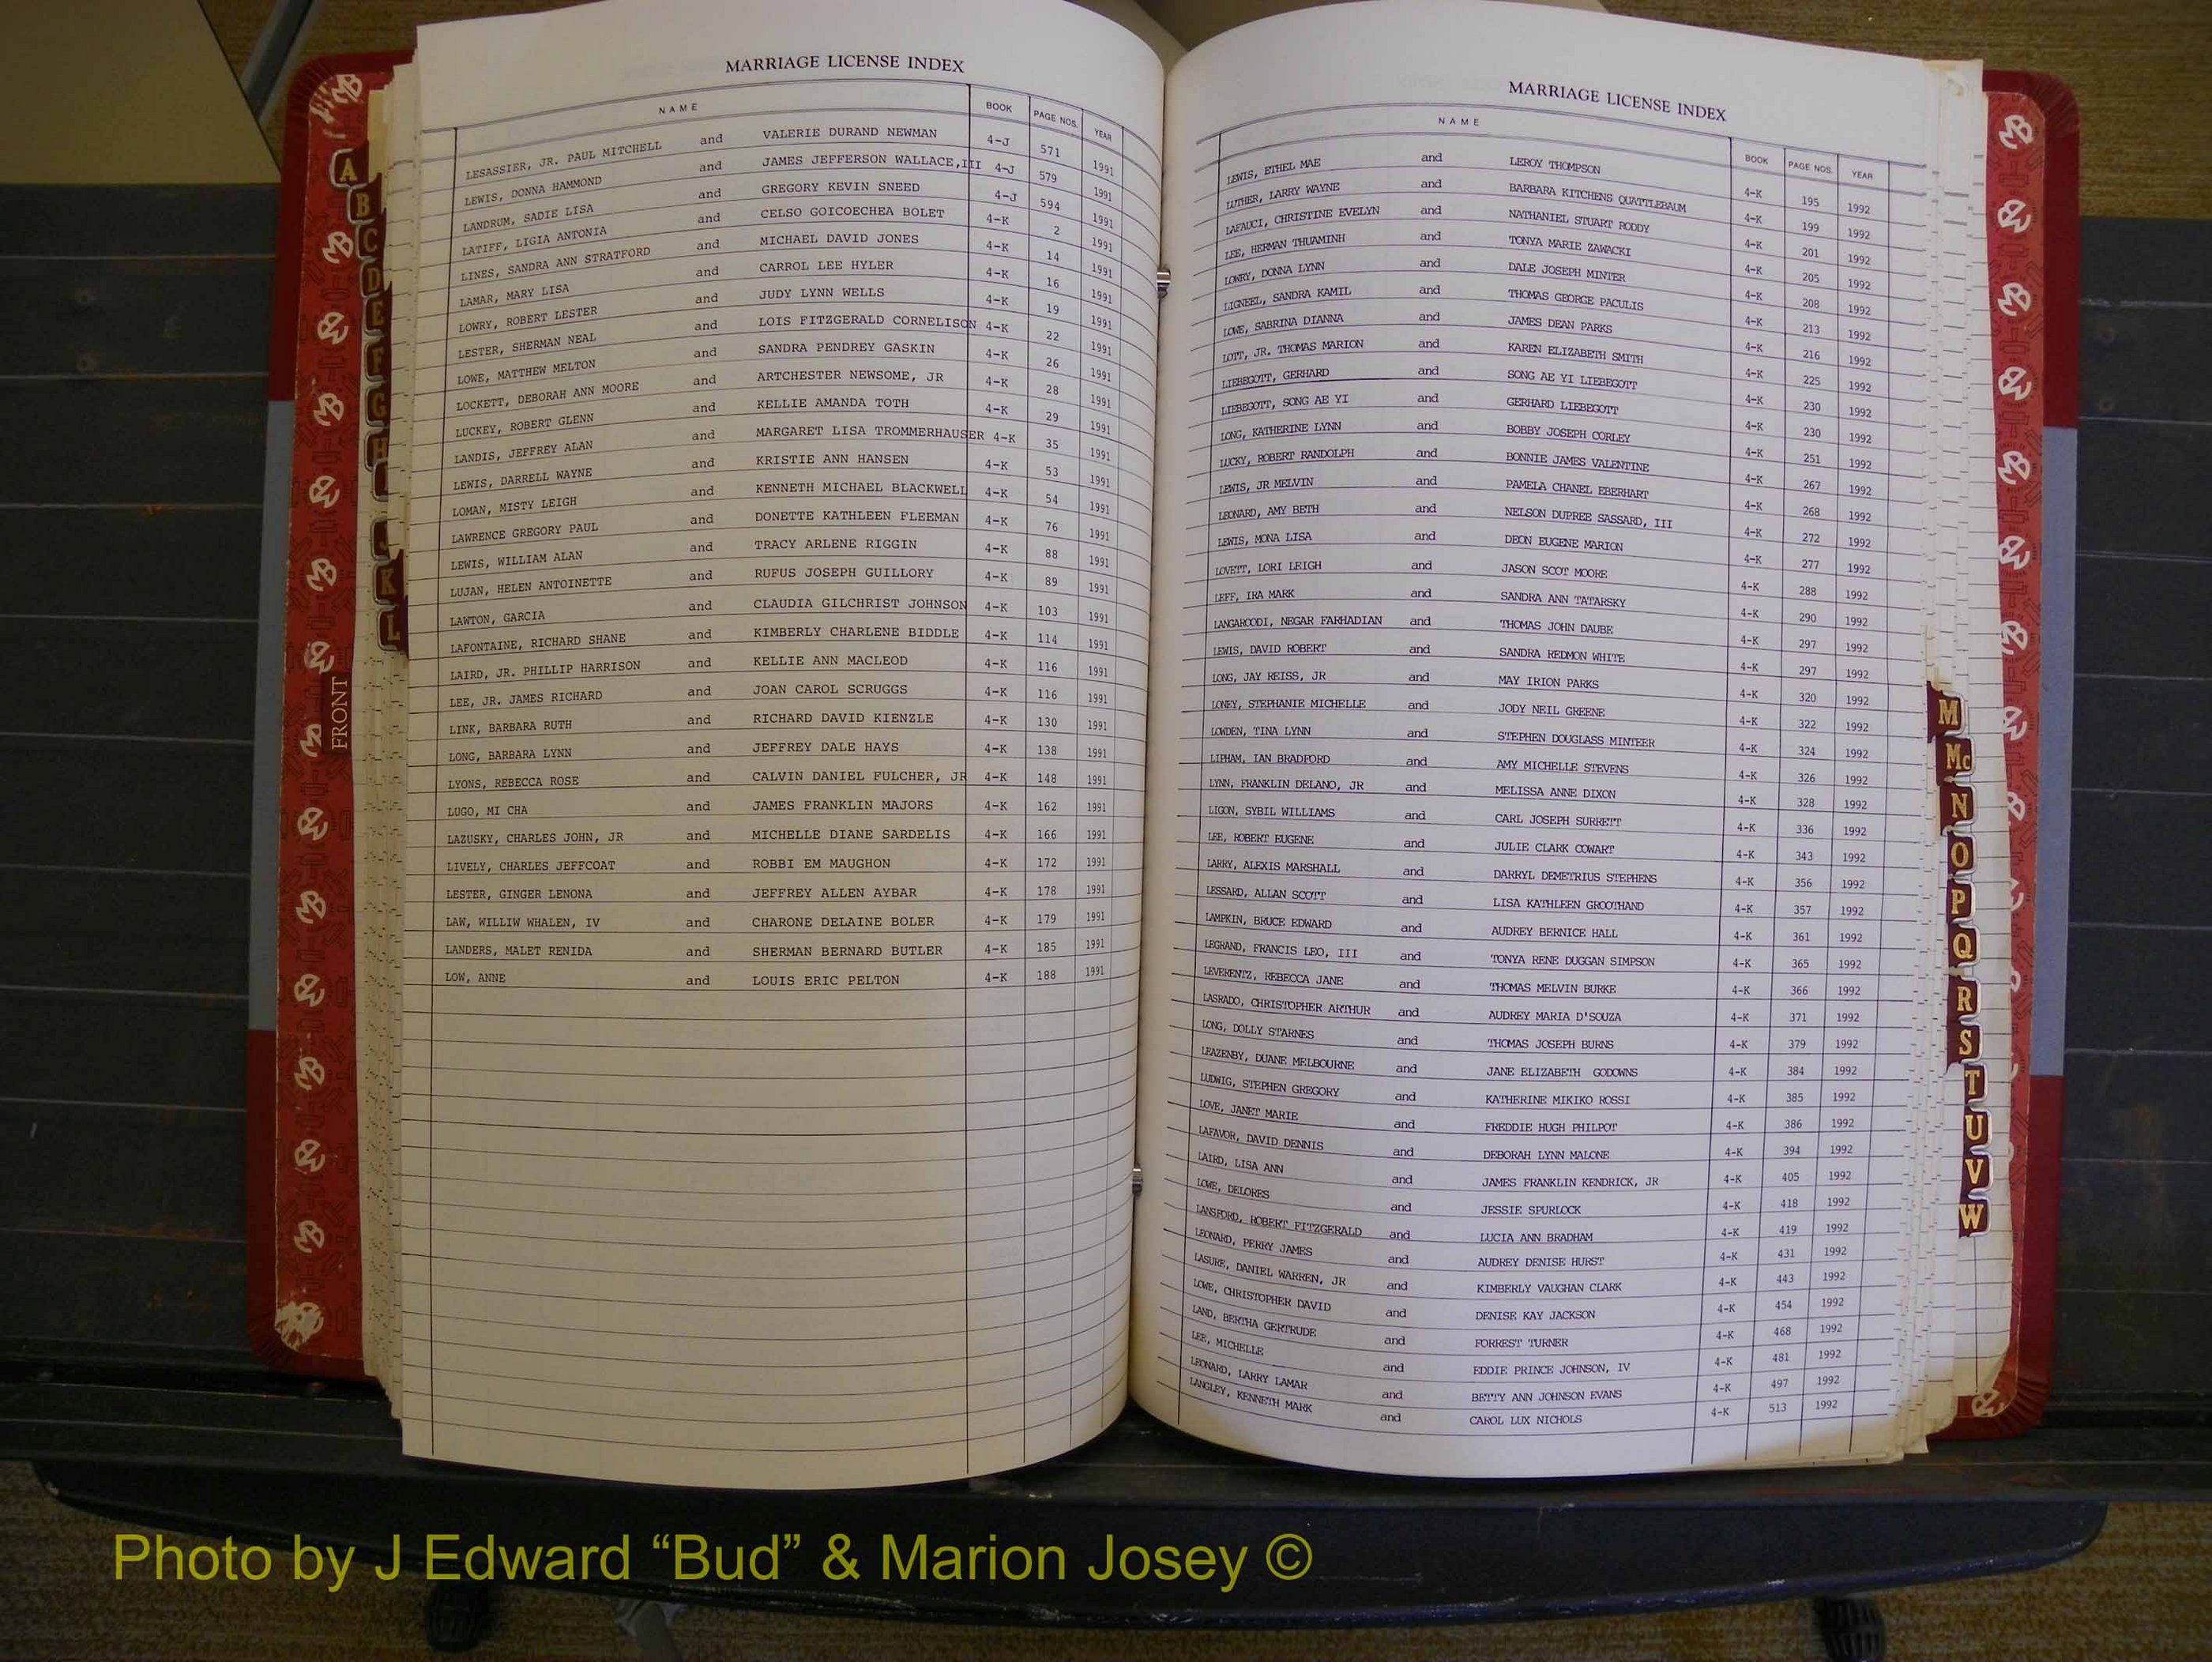 MARRIAGE LICENSE INDEX
NAME BOOK PAGE NOS. YEAR
LESASSIER, JR. PAUL MITCHELL and VALERIE DURAND NEWMAN 4-J 571 1991
LEWIS, DONNA HAMMOND and JAMES JEFFERSON WALLACE,III 4-J 579 1991
LANDRUM, SADIE LISA and GREGORY KEVIN SNEED 4-J 594 1991
LATIFF, LIGIA ANTONIA and CELSO GOICOECHEA BOLET 4-K 2 1991
LINES, SANDRA ANN STRATFORD and MICHAEL DAVID JONES 4-K 14 1991
LAMAR, MARY LISA and CARROL LEE HYLER 4-K 16 1991
LOWRY, ROBERT LESTER and JUDY LYNN WELLS 4-K 19 1991
LESTER, SHERMAN NEAL and LOIS FITZGERALD CORNELISON 4-K 22 1991
LOWE, MATTHEW MELTON and SANDRA PENDREY GASKIN 4-K 26 1991
LOCKETT, DEBORAH ANN MOORE and ARTCHESTER NEWSOME, JR 4-K 28 1991
LUCKEY, ROBERT GLENN and KELLIE AMANDA TOTH 4-K 29 1991
LANDIS, JEFFREY ALAN and MARGARET LISA TROMMERHAUSER 4-K 35 1991
LEWIS, DARRELL WAYNE and KRISTIE ANN HANSEN 4-K 53 1991
LOMAN, MISTY LEIGH and KENNETH MICHAEL BLACKWELL 4-K 54 1991
LAWRENCE GREGORY PAUL and DONETTE KATHLEEN FLEEMAN 4-K 76 1991
LEWIS, WILLIAM ALAN and TRACY ARLENE RIGGIN 4-K 88 1991
LUJAN, HELEN ANTOINETTE and RUFUS JOSEPH GUILLORY 4-K 89 1991
LAWTON, GARCIA and CLAUDIA GILCHRIST JOHNSON 4-K 103 1991
LAFONTAINE, RICHARD SHANE and KIMBERLY CHARLENE BIDDLE 4-K 114 1991
LAIRD, JR. PHILLIP HARRISON and KELLIE ANN MACLEOD 4-K 116 1991
LEE, JR. JAMES RICHARD and JOAN CAROL SCRUGGS 4-K 116 1991
LINK, BARBARA RUTH and RICHARD DAVID KIENZLE 4-K 130 1991
LONG, BARBARA LYNN and JEFFREY DALE HAYS 4-K 138 1991
LYONS, REBECCA ROSE and CALVIN DANIEL FULCHER, JR 4-K 148 1991
LUGO, MI CHA and JAMES FRANKLIN MAJORS 4-K 162 1991
LAZUSKY, CHARLES JOHN, JR and MICHELLE DIANE SARDELIS 4-K 166 1991
LIVELY, CHARLES JEFFCOAT and ROBBI EM MAUGHON 4-K 172 1991
LESTER, GINGER LENONA and JEFFREY ALLEN AYBAR 4-K 178 1991
LAW, WILLIW WHALEN, IV and CHARONE DELAINE BOLER 4-K 179 1991
LANDERS, MALET RENIDA and SHERMAN BERNARD BUTLER 4-K 185 1991
LOW, ANNE and LOUIS ERIC PELTON 4-K 188 1991
MARRIAGE LICENSE INDEX
NAME BOOK PAGE NOS. YEAR
LEWIS, ETHEL MAE and LEROY THOMPSON 4-K 195 1992
LUTHER, LARRY WAYNE and BARBARA KITCHENS QUATTLEBAUM 4-K 199 1992
LAFAUCI, CHRISTINE EVELYN and NATHANIEL STUART RODDY 4-K 201 1992
LEE, HERMAN THUAMINH and TONYA MARIE ZAWACKI 4-K 205 1992
LOWRY, DONNA LYNN and DALE JOSEPH MINTER 4-K 208 1992
LIGNEEL, SANDRA KAMIL and THOMAS GEORGE PACULIS 4-K 213 1992
LOWE, SABRINA DIANNA and JAMES DEAN PARKS 4-K 216 1992
LOTT, JR. THOMAS MARION and KAREN ELIZABETH SMITH 4-K 225 1992
LIEBEGOTT, GERHARD and SONG AE YI LIEBEGOTT 4-K 230 1992
LIEBEGOTT, SONG AE YI and GERHARD LIEBEGOTT 4-K 230 1992
LONG, KATHERINE LYNN and BOBBY JOSEPH CORLEY 4-K 251 1992
LUCKY, ROBERT RANDOLPH and BONNIE JAMES VALENTINE 4-K 267 1992
LEWIS, JR MELVIN and PAMELA CHANEL EBERHART 4-K 268 1992
LEONARD, AMY BETH and NELSON DUPREE SASSARD, III 4-K 272 1992
LEWIS, MONA LISA and DEON EUGENE MARION 4-K 277 1992
LOVETT, LORI LEIGH and JASON SCOT MOORE 4-K 288 1992
LEFF, IRA MARK and SANDRA ANN TATARSKY 4-K 290 1992
LANGAROODI, NEGAR FARHADIAN and THOMAS JOHN DAUBE 4-K 297 1992
LEWIS, DAVID ROBERT and SANDRA REDMON WHITE 4-K 297 1992
LONG, JAY REISS, JR and MAY IRION PARKS 4-K 320 1992
LONEY, STEPHANIE MICHELLE and JODY NEIL GREENE 4-K 322 1992
LOWDEN, TINA LYNN and STEPHEN DOUGLASS MINTEER 4-K 324 1992
LIPHAM, IAN BRADFORD and AMY MICHELLE STEVENS 4-K 326 1992
LYNN, FRANKLIN DELANO, JR and MELISSA ANNE DIXON 4-K 328 1992
LIGON, SYBIL WILLIAMS and CARL JOSEPH SURRETT 4-K 336 1992
LEE, ROBERT EUGENE and JULIE CLARK COWART 4-K 343 1992
LARRY, ALEXIS MARSHALL and DARRYL DEMETRIUS STEPHENS 4-K 356 1992
LESSARD, ALLAN SCOTT and LISA KATHLEEN GROOTHAND 4-K 357 1992
LAMPKIN, BRUCE EDWARD and AUDREY BERNICE HALL 4-K 361 1992
LEGRAND, FRANCIS LEO, III and TONYA RENE DUGGAN SIMPSON 4-K 365 1992
LEVERENTZ, REBECCA JANE and THOMAS MELVIN BURKE 4-K 366 1992
LASRADO, CHRISTOPHER ARTHUR and AUDREY MARIA D'SOUZA 4-K 371 1992
LONG, DOLLY STARNES and THOMAS JOSEPH BURNS 4-K 379 1992
LEAZENBY, DUANE MELBOURNE and JANE ELIZABETH GODOWNS 4-K 384 1992
LUDWIG, STEPHEN GREGORY and KATHERINE MIKIKO ROSSI 4-K 385 1992
LOVE, JANET MARIE and FREDDIE HUGH PHILPOT 4-K 386 1992
LAFAVOR, DAVID DENNIS and DEBORAH LYNN MALONE 4-K 394 1992
LAIRD, LISA ANN and JAMES FRANKLIN KENDRICK, JR 4-K 405 1992
LOWE, DELORES and JESSIE SPURLOCK 4-K 418 1992
LANSFORD, ROBERT FITZGERALD and LUCIA ANN BRADHAM 4-K 419 1992
LEONARD, PERRY JAMES and AUDREY DENISE HURST 4-K 431 1992
LASURE, DANIEL WARREN, JR and KIMBERLY VAUGHAN CLARK 4-K 443 1992
LOWE, CHRISTOPHER DAVID and DENISE KAY JACKSON 4-K 454 1992
LAND, BERTHA GERTRUDE and FORREST TURNER 4-K 468 1992
LEE, MICHELLE and EDDIE PRINCE JOHNSON, IV 4-K 481 1992
LEONARD, LARRY LAMAR and BETTY ANN JOHNSON EVANS 4-K 497 1992
LANGLEY, KENNETH MARK and CAROL LUX NICHOLS 4-K 513 1992
A
B
C
D
E
F
G
H
I
J
K
L
FRONT
M
Mc
N
O
P
Q
R
S
T
U
V
W
Photo by J Edward “Bud” & Marion Josey ©